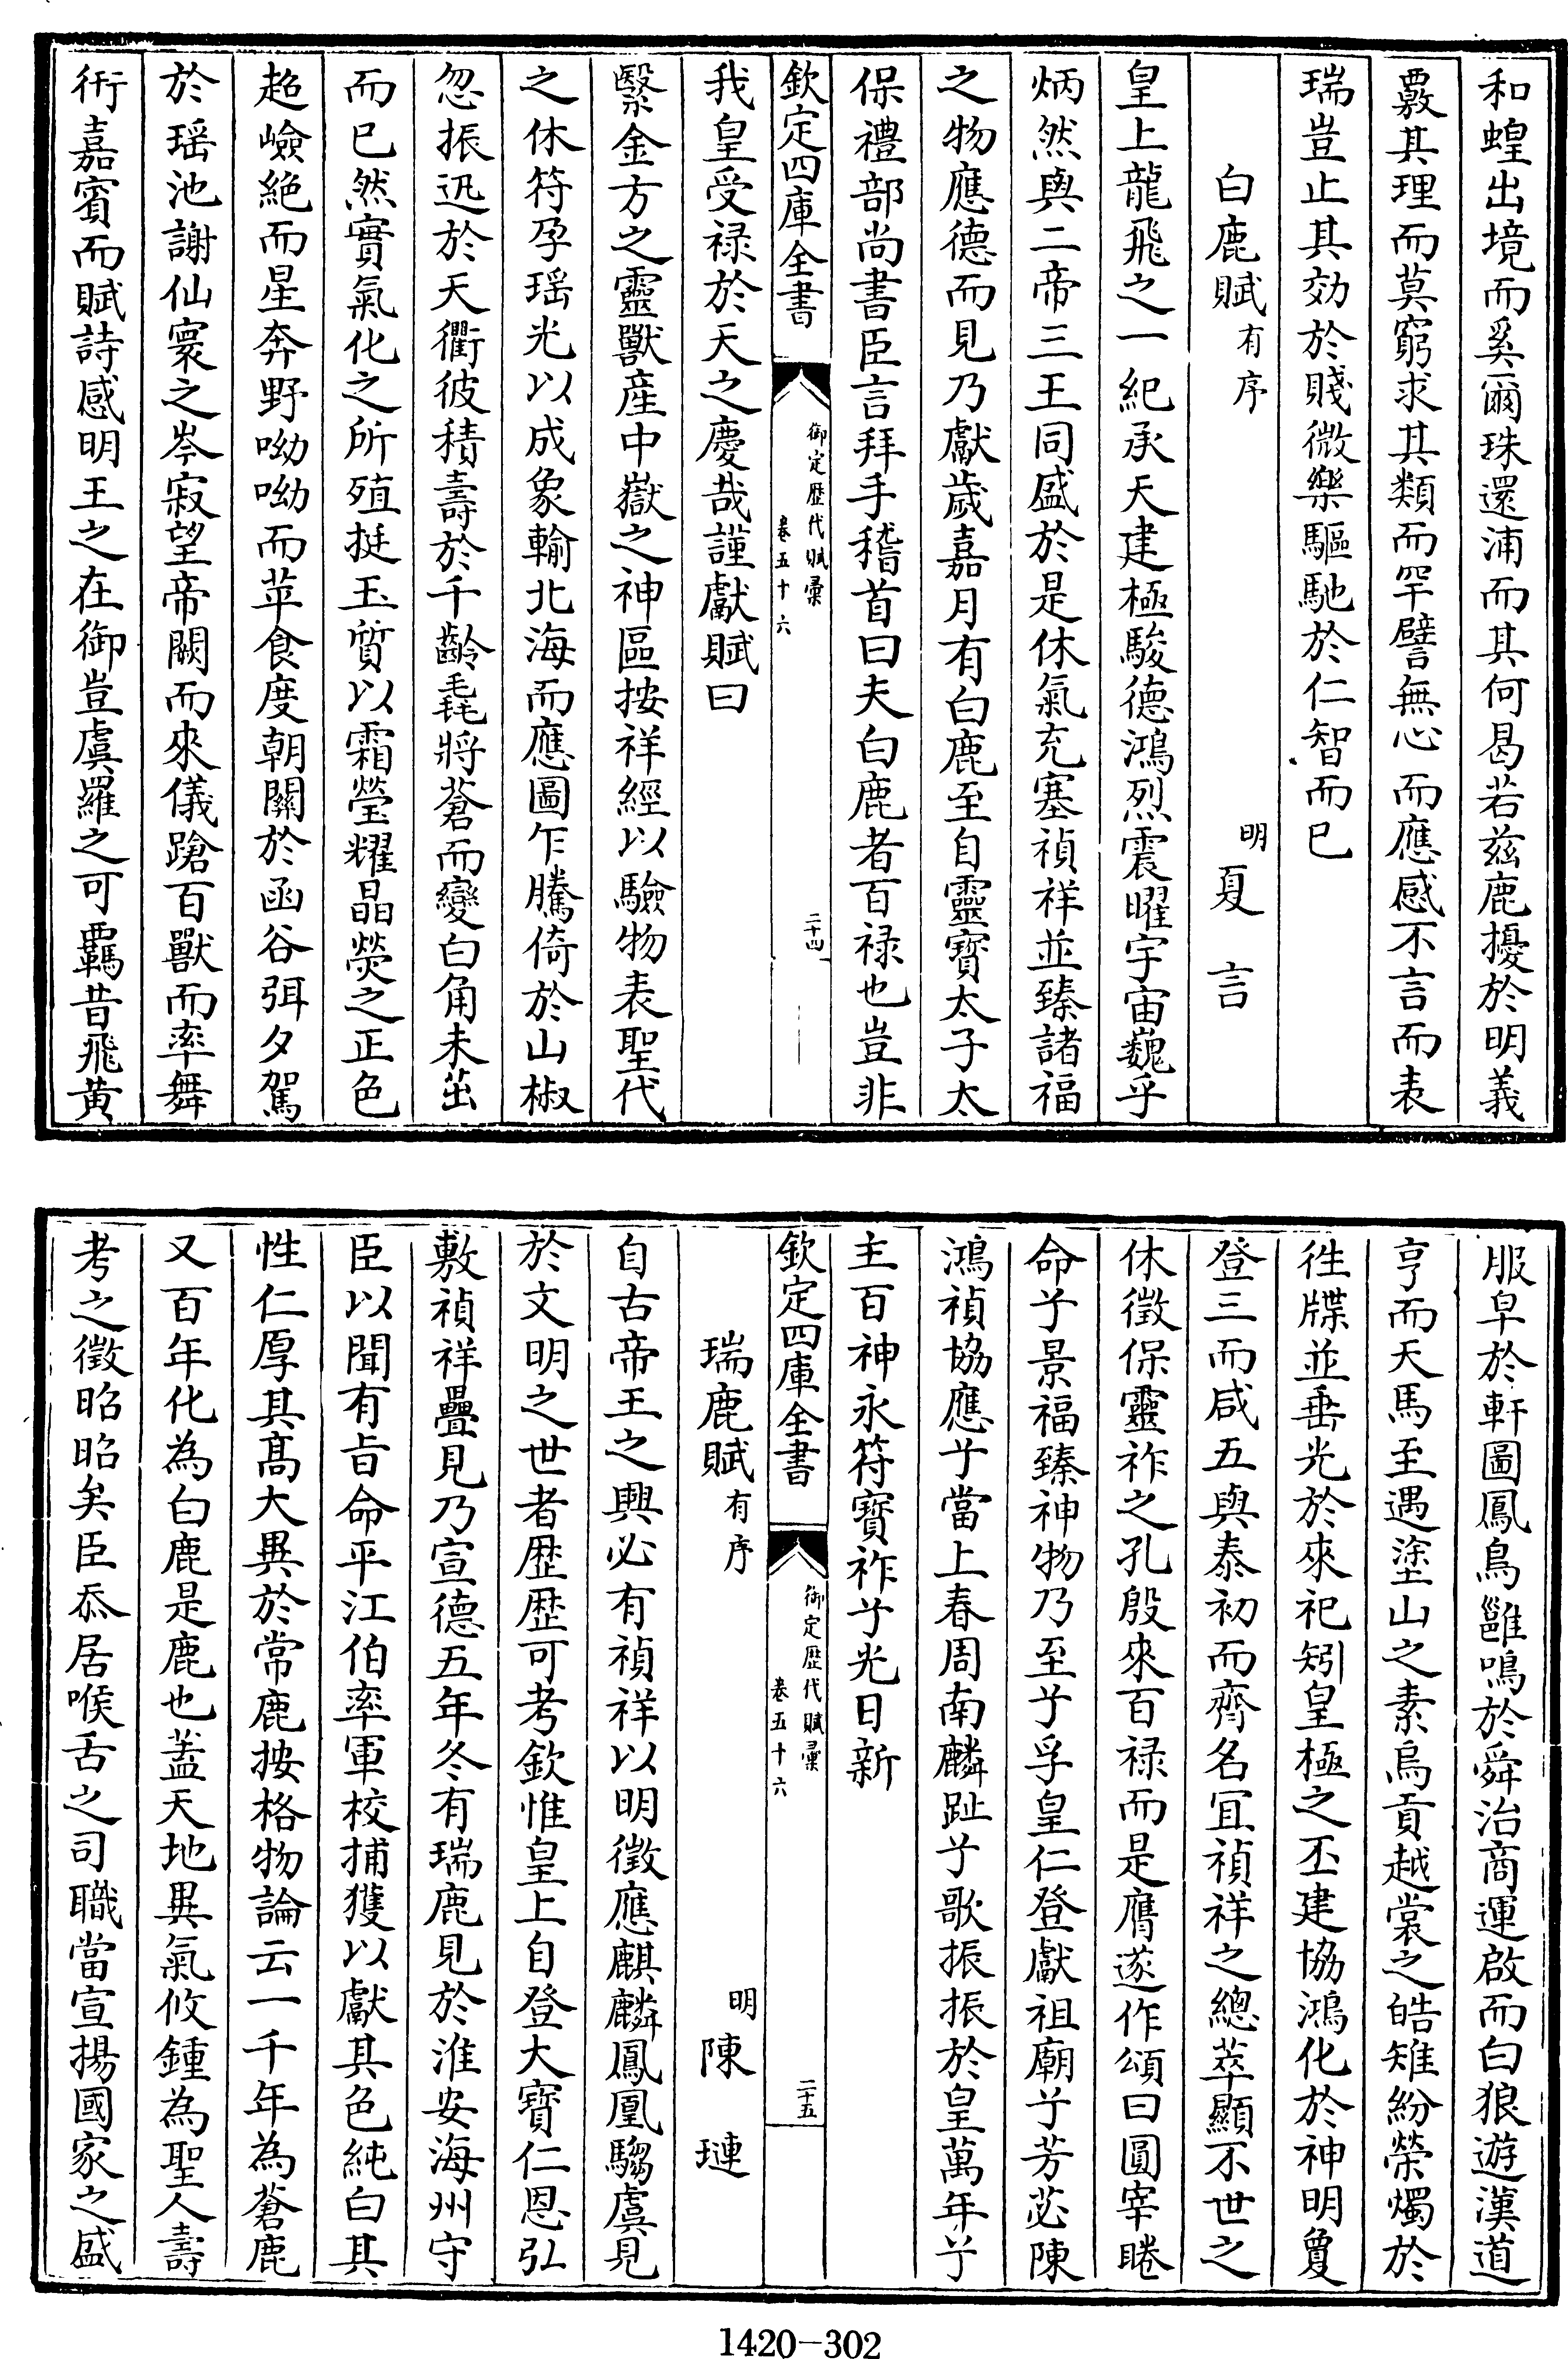 和蝗出境而奚爾珠還浦而其何曷若兹鹿擾於明義
覈其理而莫窮求其類而罕譬無心而應感不言而表
瑞豈止其効於賤微樂驅馳於仁智而已
白鹿賦有序
明夏言
皇上龍飛之一紀承天建極駿德鴻烈震曜宇宙巍乎
炳然與二帝三王同盛於是休氣充塞禎祥並臻諸福
之物應德而見乃獻歲嘉月有白鹿至自靈寳太子太
保禮部尚書臣言拜手稽首曰夫白鹿者百禄也豈非
欽定四庫全書
御定歴代賦彙
卷五十六
二十四
我皇受禄於天之慶哉謹獻賦曰
繄金方之靈獸産中嶽之神區按祥經以驗物表聖代
之休符孕瑶光以成象輸北海而應圖乍騰倚於山椒
忽振迅於天衢彼積壽於千齡毛將蒼而變白角未茁
而已然實氣化之所殖挺玉質以霜瑩耀晶熒之正色
超嶮絶而星奔野呦呦而苹食度朝關於函谷弭夕駕
於瑶池謝仙寰之岑寂望帝闕而來儀蹌百獸而率舞
衎嘉賓而賦詩感明王之在御豈虞羅之可羈昔飛黄
服皁於軒圖鳳鳥雝鳴於舜治商運啟而白狼遊漢道
亨而天馬至遇塗山之素烏貢越裳之皓雉紛榮燭於
徃牒並垂光於來祀矧皇極之丕建協鴻化於神明敻
登三而咸五與泰初而齊名宜禎祥之總萃顯不世之
休徵保靈祚之孔殷來百禄而是膺遂作頌曰圓宰睠
命兮景福臻神物乃至兮孚皇仁登獻祖廟兮芳苾陳
鴻禎協應兮當上春周南麟趾兮歌振振於皇萬年兮
主百神永符寳祚兮光日新
欽定四庫全書
御定歴代賦彙
卷五十六
二十五
瑞鹿賦有序
明陳璉
自古帝王之興必有禎祥以明徵應麒麟鳳凰騶虞見
於文明之世者歴歴可考欽惟皇上自登大寳仁恩弘
敷禎祥疊見乃宣德五年冬有瑞鹿見於淮安海州守
臣以聞有旨命平江伯率軍校捕獲以獻其色純白其
性仁厚其髙大異於常鹿按格物論云一千年為蒼鹿
又百年化為白鹿是鹿也盖天地異氣攸鍾為聖人壽
考之徵昭昭矣臣忝居喉舌之司職當宣揚國家之盛
1420-302